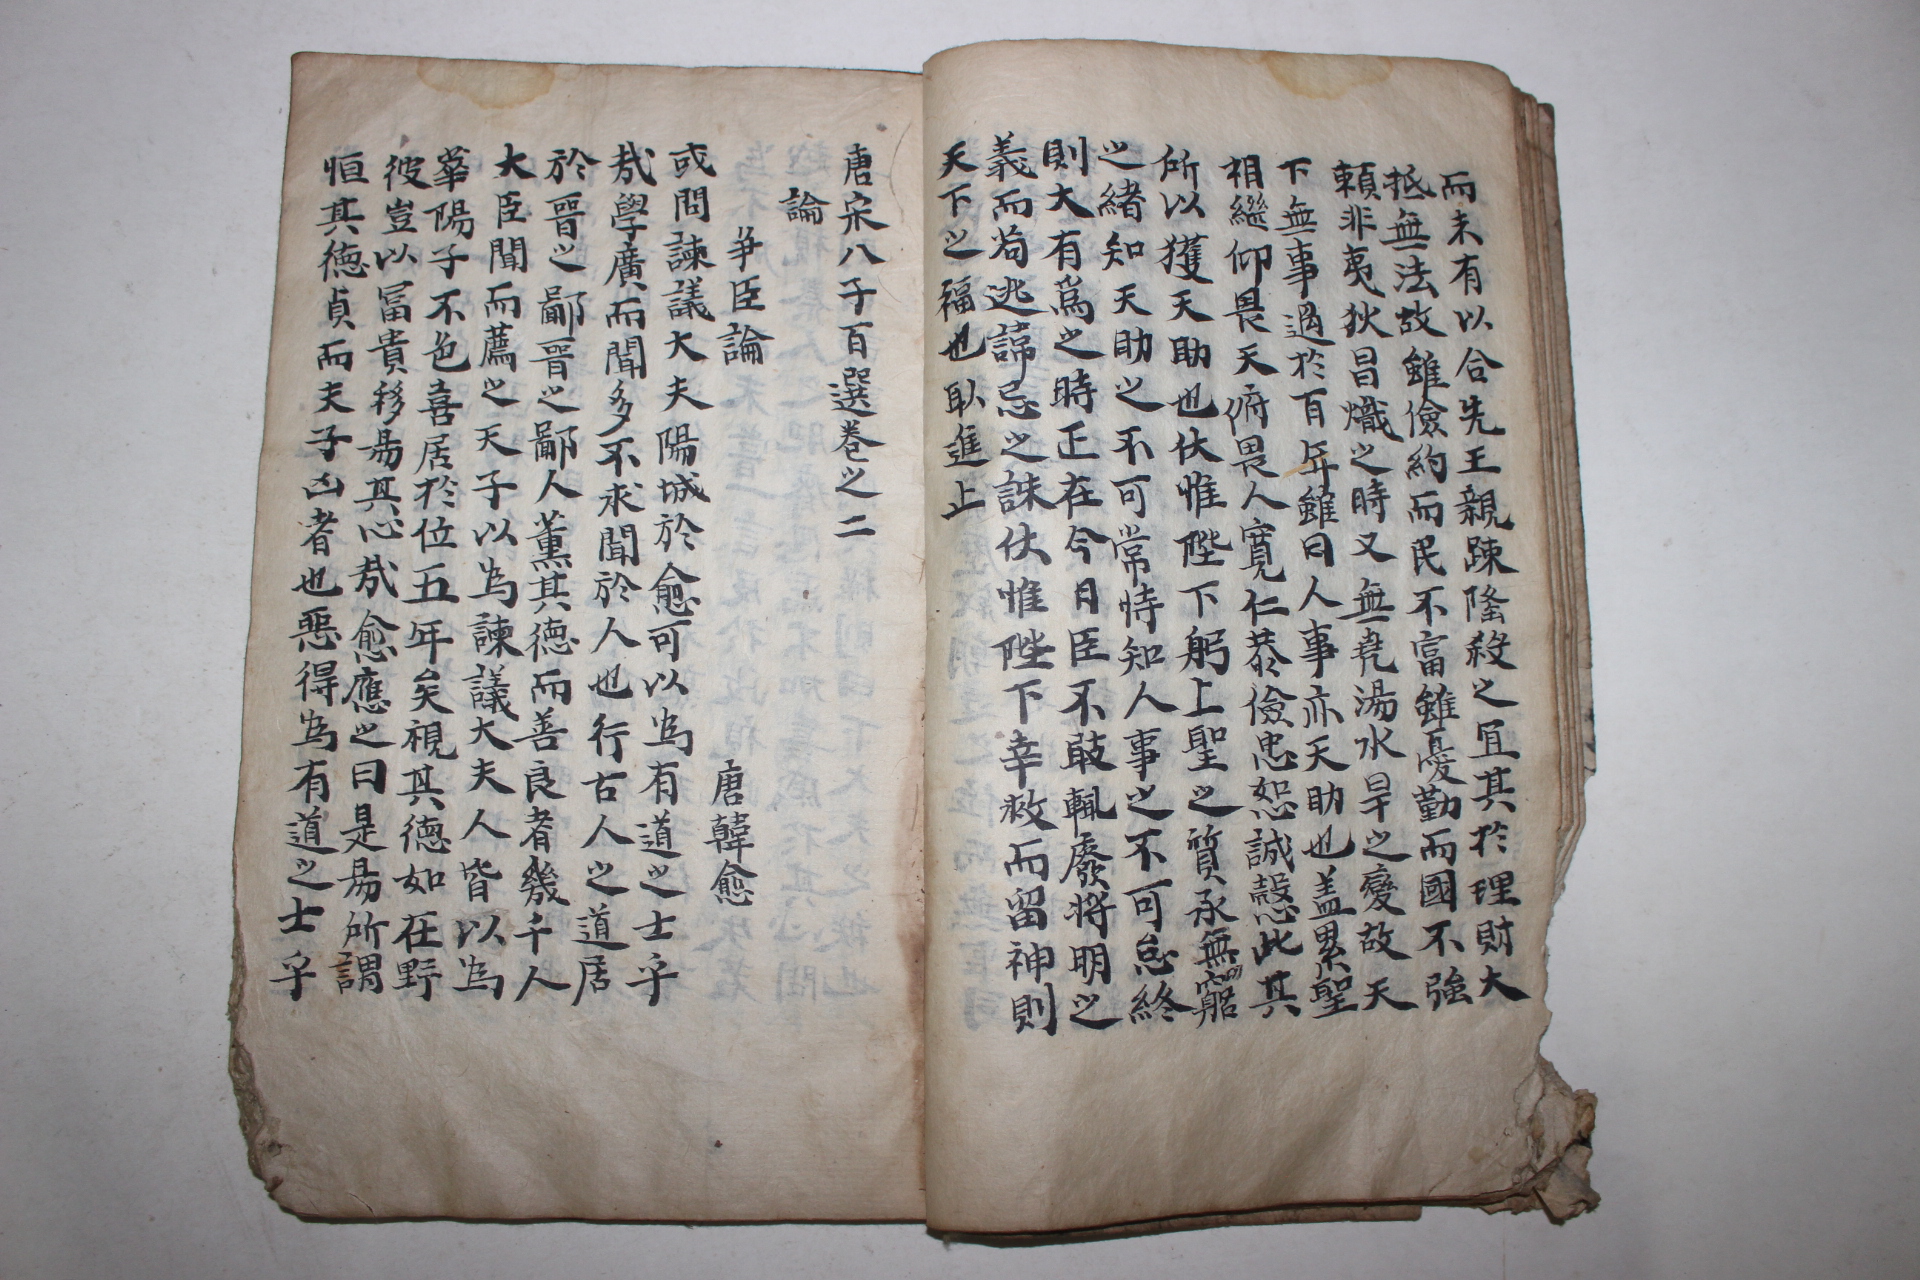 而未有以合先王親踈隆殺之宜其於理財大
抵無法故雖儉約而民不富雖憂勤而國不強
賴非夷狄昌熾之時又無堯湯水旱之變故天
下無事過於百年雖曰人事亦天助也盖累聖
相繼仰畏天俯畏人寛仁恭儉忠恕誠慤此其
所以獲天助也伏惟陛下躬上聖之質承無窮
之緖知天助之不可常恃知人事之不可怠終
則大有爲之時正在今日臣不敢輒廢將明之
義而苟逃諱忌之誅伏惟陛下幸赦而留神則
天下之福也取進上
唐宋八子百選卷之二
論
爭臣論 唐韓愈
或問諫議大夫陽城於愈可以爲有道之士乎
㢤學廣而聞多不求聞於人也行古人之道居
於晋之鄙晋之鄙人薰其德而善良者幾千人
大臣聞而薦之天子以爲諫議大夫人皆以爲
華陽子不色喜居於位五年矣視其德如在野
彼豈以冨貴移易其心㢤愈應之曰是易所謂
恒其德貞而夫子凶者也惡得爲有道之士乎